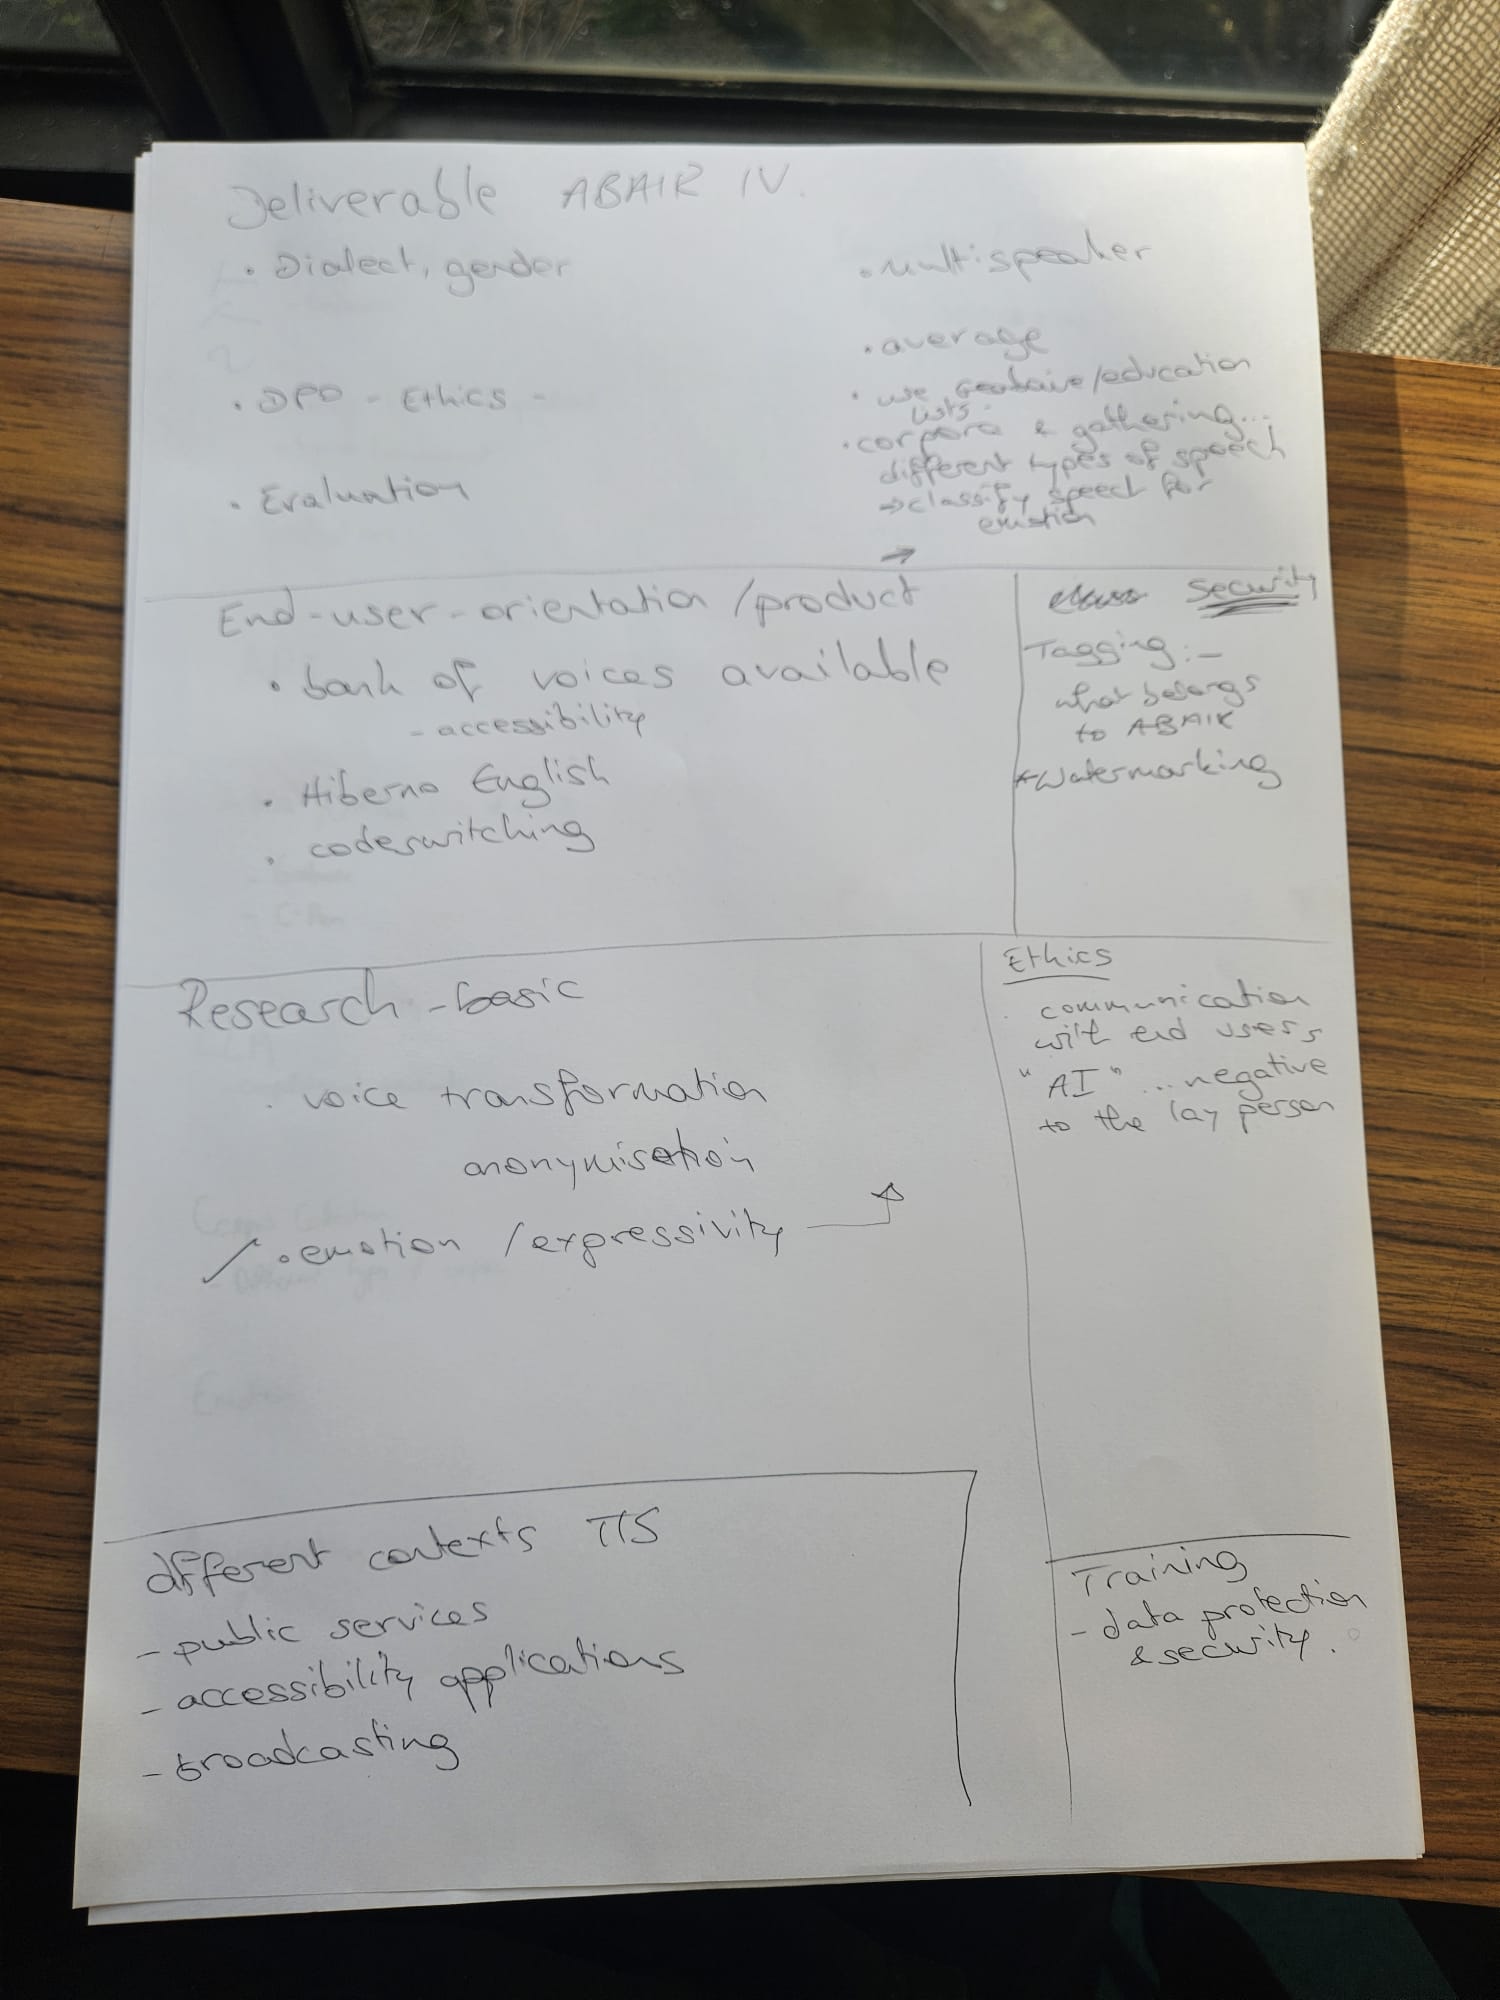 Deliverable ABAIR IV.
• Dialect, gender
• DPO - Ethics -
• Evaluation
• multispeaker
• average
• use /education
lists
• corpora & gathering...
different types of speech
→ classify speech for
emotion
→
End-user-orientation /product
• bank of voices available
- accessibility
• Hiberno English
• codeswitching
Security
Tagging:-
what belongs
to ABAIR
*Watermarking
Research - basic
• voice transformation
anonymisation
• emotion /expressivity
Ethics
• communication
with end users
"AI" ... negative
to the lay person
different contexts TTS
- public services
- accessibility applications
- broadcasting
Training
- data protection
& security.